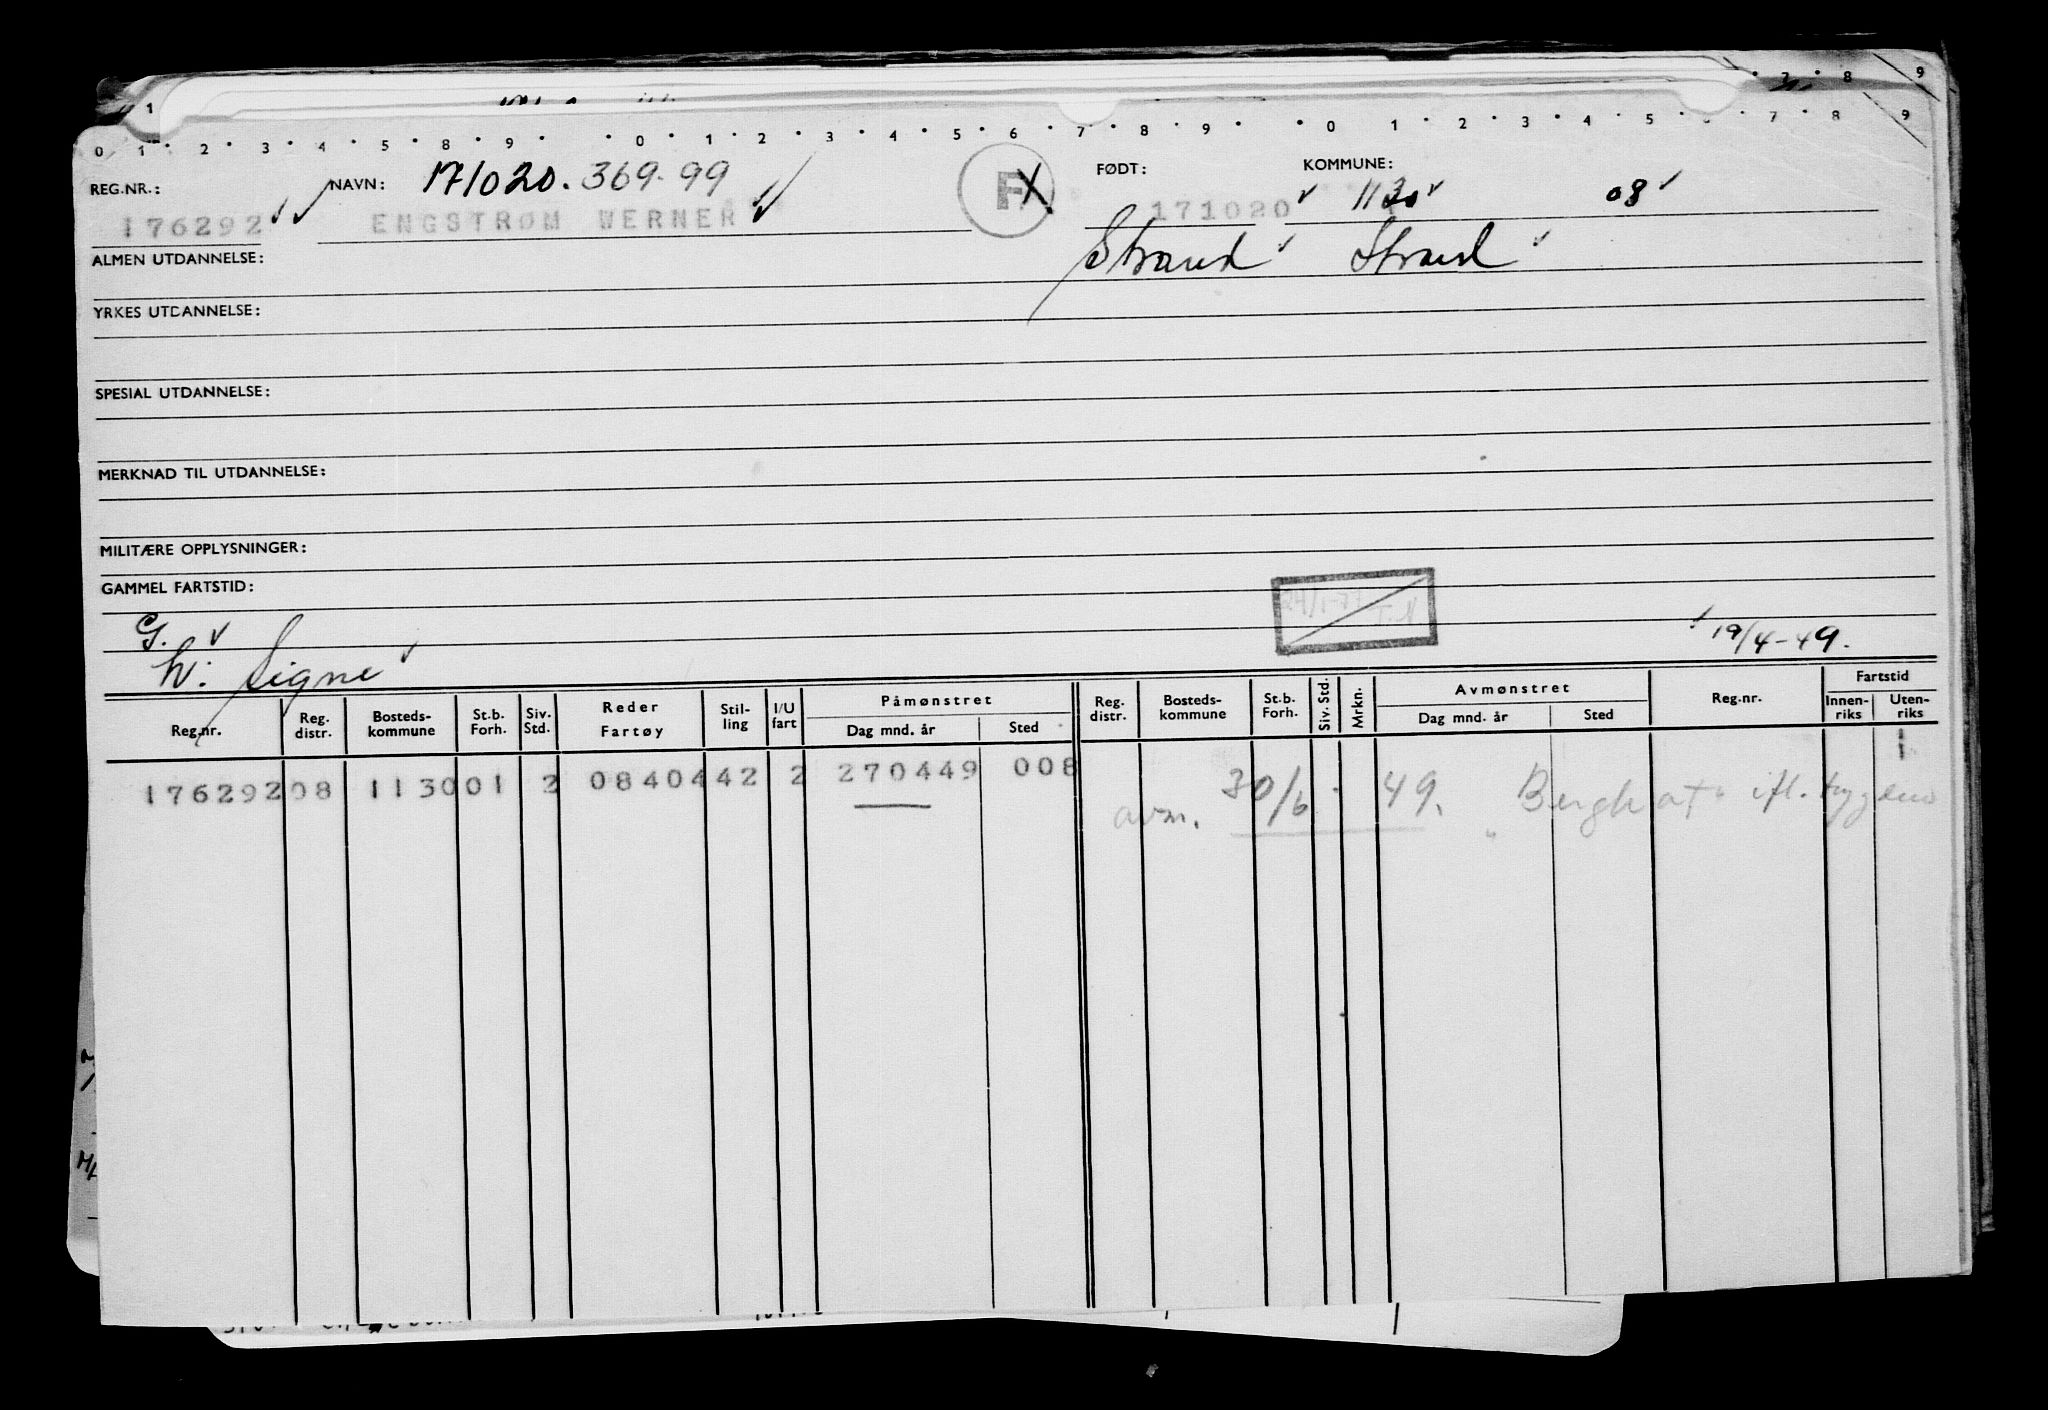 7 8 9
1
0 1 2 3 4 5 8 9 0 1 2 3 4 5 6 7 8 9 0 1 2 3 4 5 6 7 8 9
REG.NR.: NAVN: 171020. 369.99 F FØDT: KOMMUNE:
176292 ENGSTRØM WERNER 171020 1130 08
ALMEN UTDANNELSE: Strand Strand
YRKES UTDANNELSE:
SPESIAL UTDANNELSE:
MERKNAD TIL UTDANNELSE:
MILITÆRE OPPLYSNINGER:
GAMMEL FARTSTID:
G. 19/4-49.
h: Signe
Reg.nr. Reg. distr. Bosteds-kommune St.b. Forh. Siv. Std. Reder Fartøy Stil-ling I/U fart Påmønstret Dag mnd. år Sted Reg. distr. Bosteds-kommune St.b. Forh. Siv. Std. Mrkn. Avmønstret Dag mnd. år Sted Reg.nr. Fartstid Innen-riks Uten-riks
176292 08 1130 01 2 08404 42 2 270449 008 1
avm. 30/6 - 49. "Berghat" ifl. trygden